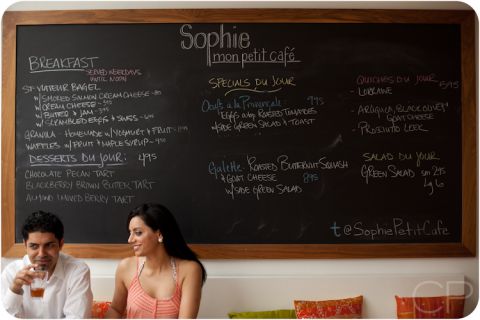 Sophie
mon petit café
BREAKFAST
SERVED WEEKDAYS
UNTIL NOON
ST-VIATEUR BAGEL
W/ SMOKED SALMON CREAM CHEESE -
W/ CREAM CHEESE -
W/ BUTTER & JAM -
W/ SCRAMBLED EGGS & SWISS -
GRANOLA - HOMEMADE W/ YOGHURT & FRUIT -
WAFFLES W/ FRUIT & MAPLE SYRUP -
DESSERTS DU JOUR: 495
CHOCOLATE PECAN TART
BLACKBERRY BROWN BUTTER TART
ALMOND TART
SPECIALS DU JOUR
Oeufs a la Provençale 995
EGGS w/ ROASTED TOMATOES
w/ SIDE GREEN SALAD & TOAST
Galette - ROASTED BUTTERNUT SQUASH
& GOAT CHEESE 895
w/ SIDE GREEN SALAD
QUICHES DU JOUR 595
- LORRAINE
- ARUGULA, BLACK OLIVE &
GOAT CHEESE
- PROSCIUTTO LEEK
SALAD DU JOUR
GREEN SALAD sm 295
Lg 6
t @SOPHIEPETITCAFE
CP